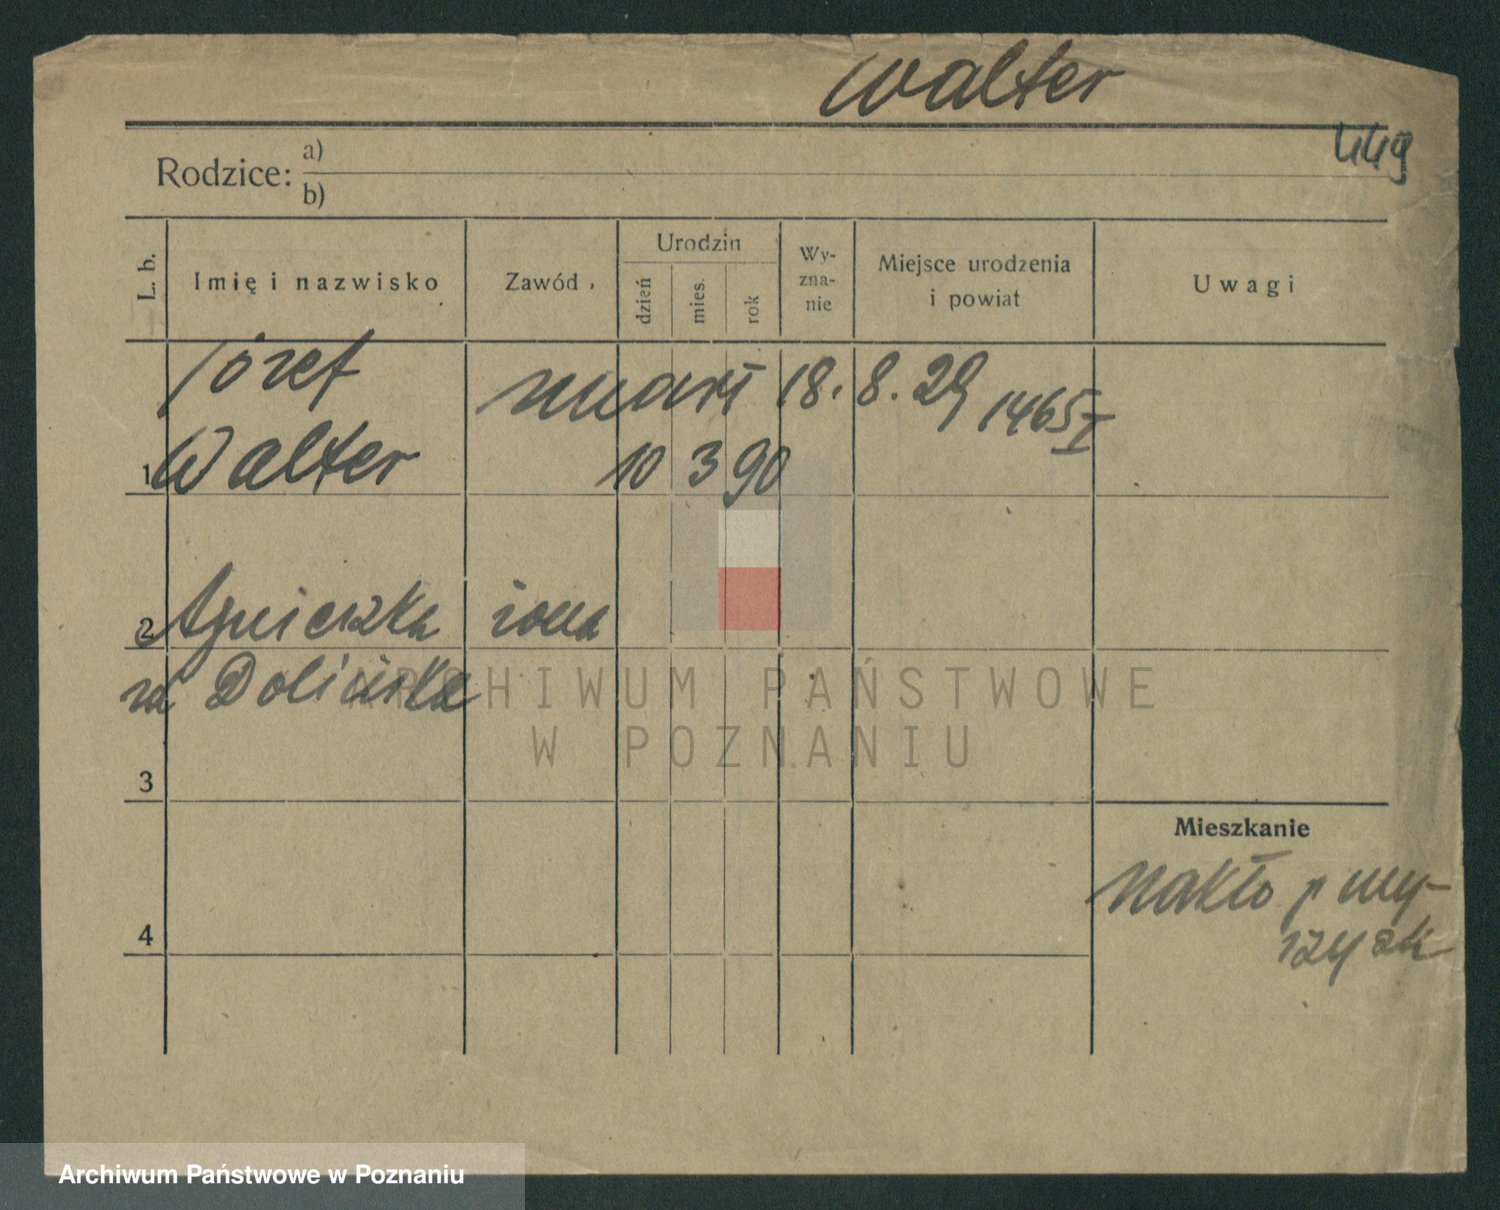 Walter
449
Rodzice: a)
b)
L. b.
Imię i nazwisko
Zawód
Urodzin
dzień
mies.
rok
Wy-
zna-
nie
Miejsce urodzenia
i powiat
Uwagi
Józef zmarł 18. 8. 29 1465 I
1 Walter 10 3 90
2 Agnieszka żona
zd Dolińska
3
Mieszkanie
Nakło p Wy-
rzysk
4
ARCHIWUM PAŃSTWOWE
W POZNANIU
Archiwum Państwowe w Poznaniu